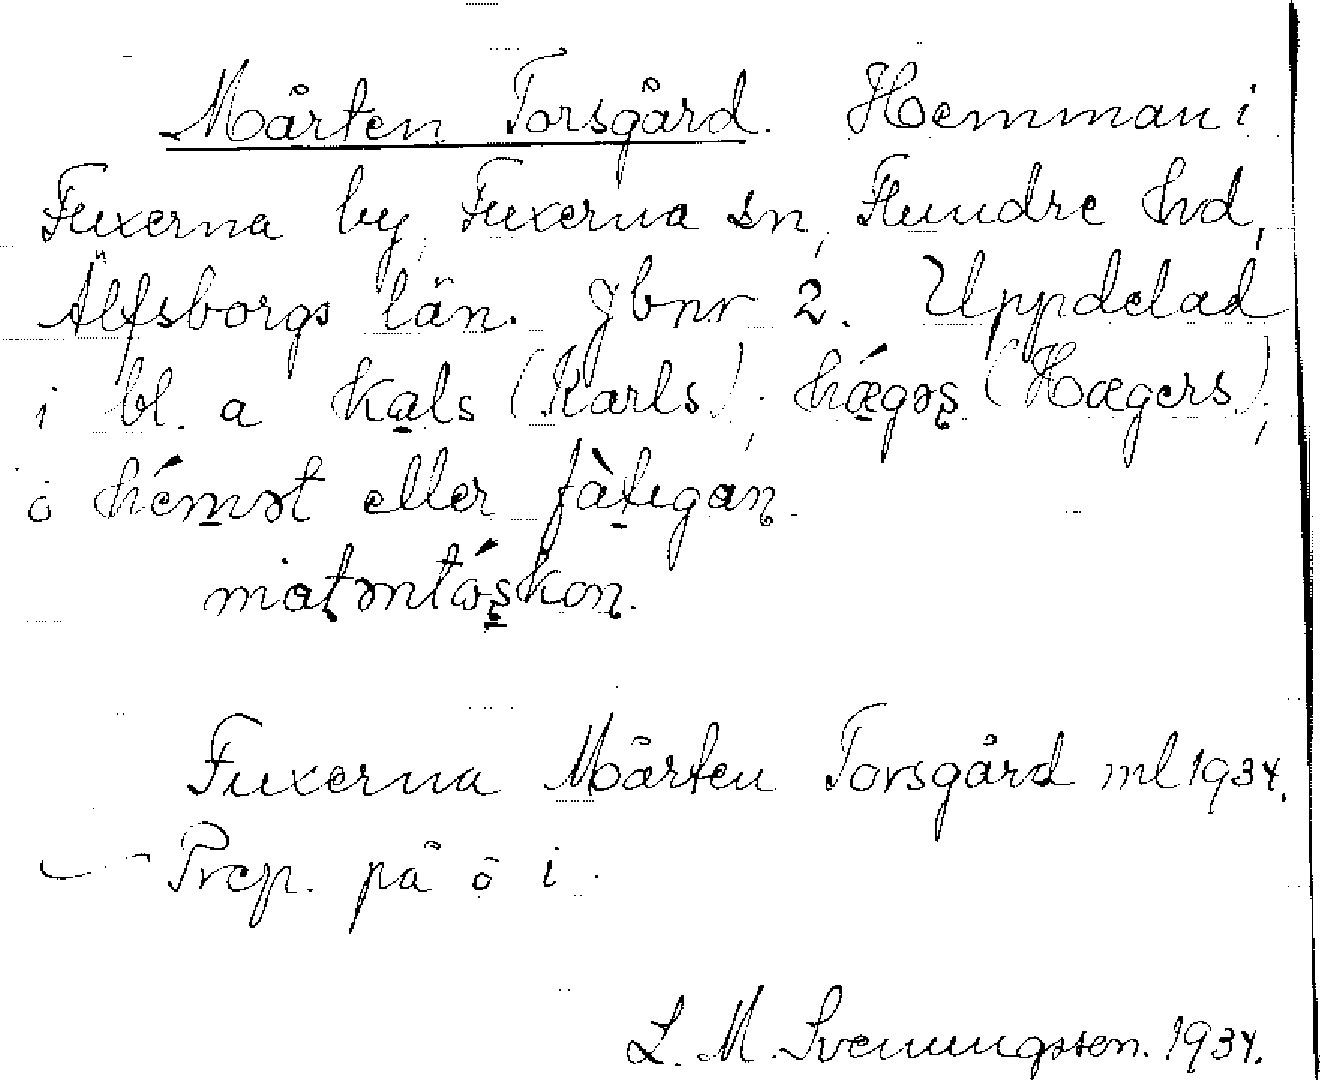 Mårten Torsgård. Hemman i
Fuxerna by, Fuxerna sn, Flundre hd,
Älfsborgs län. Jbnr 2. Uppdelad
i bl. a kals (Karls), hǽgəş (Hægers),
o hémət eller fàtıgan.
matəntåskon.
Fuxerna Mårten Torsgård ml 1934.
Prep. på o i.
L. M. Svenungsson. 1934.